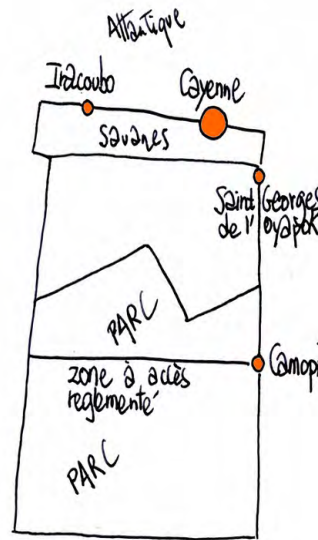 Atlantique
Iracoubo
Cayenne
savanes
Saint Georges
de l' oyapok
PARC
Camopi
zone à accès
reglementé
PARC